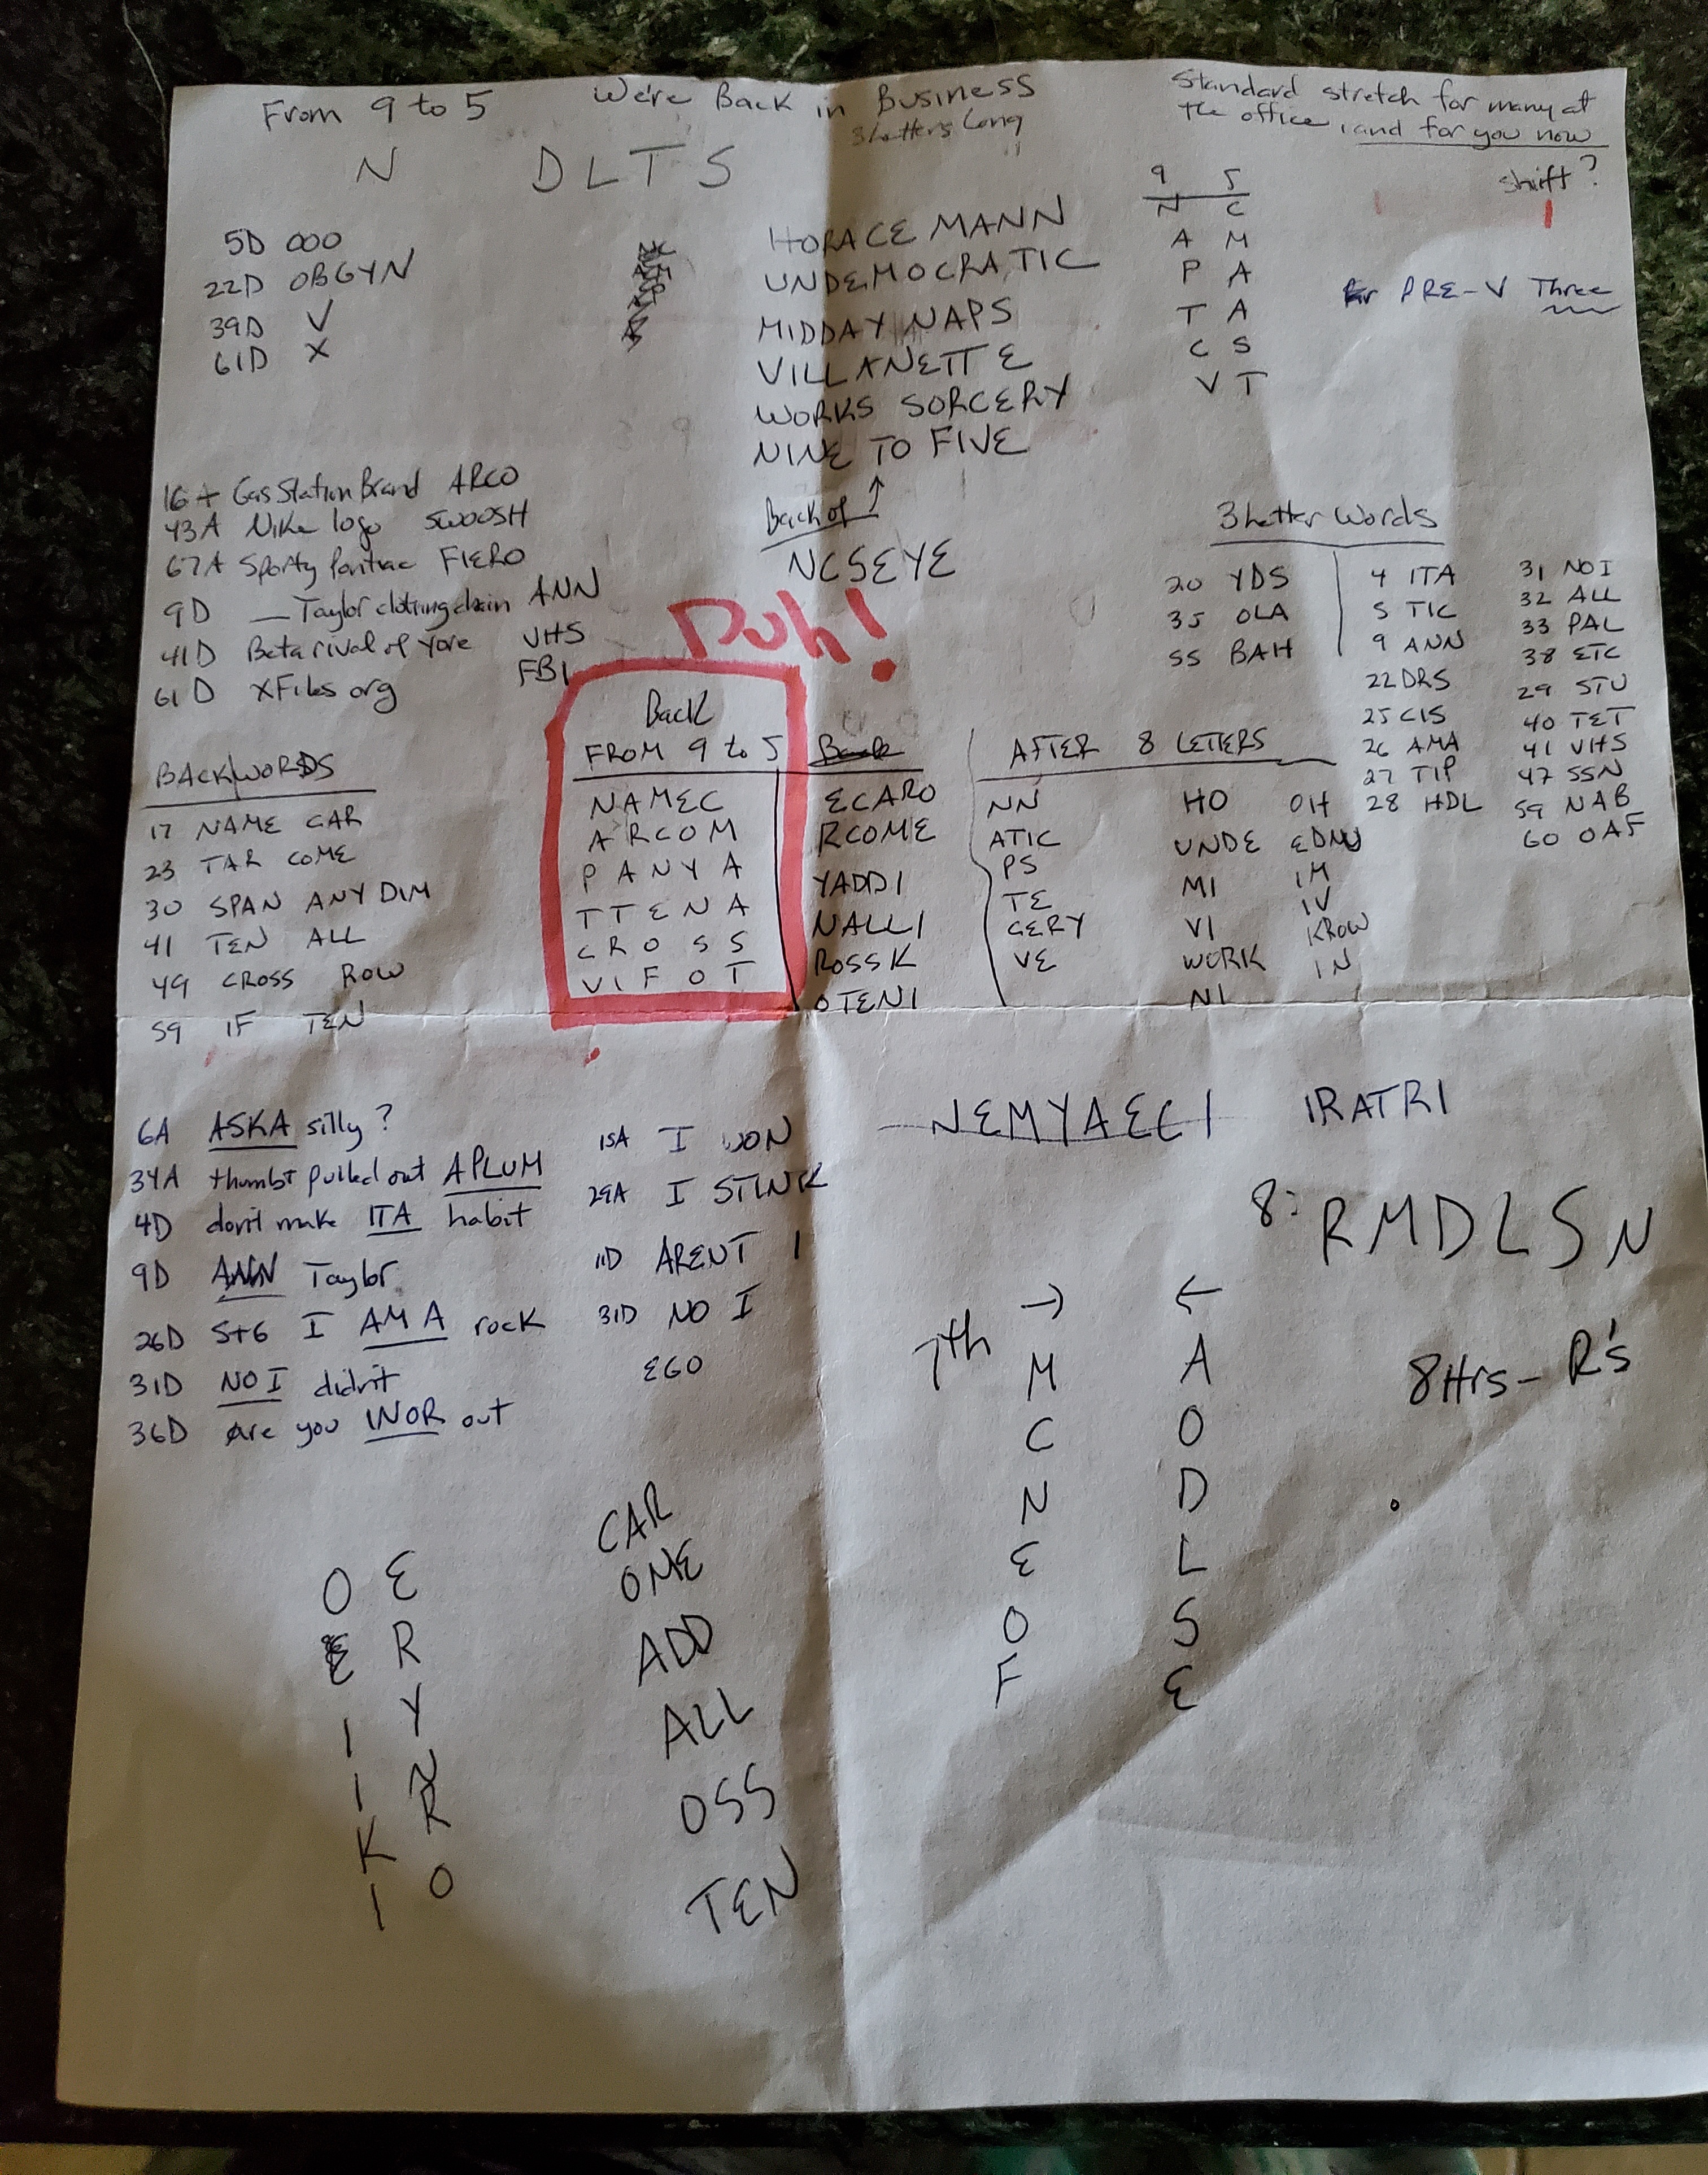 From 9 to 5
We're Back in Business
3 letters long
Standard stretch for many at
the office, and for you now
shift?
N DLTS
9 5
N C
A M
P A
T A
C S
V T
5D OOO
22D OBGYN
39D V
61D X
HORACE MANN
UNDEMOCRATIC
MIDDAY NAPS
VILLANETTE
WORKS SORCERY
NINE TO FIVE
Back of ↑
NCSEYE
PRE-V Three
16A Gas Station Brand ARCO
43A Nike logo SWOOSH
67A Sporty Pontiac FIERO
9D __ Taylor clothing chain ANN
41D Beta rival of yore VHS
61D XFiles org FBI
Duh!
3 letter Words
20 YDS
35 OLA
55 BAH
4 ITA
5 TIC
9 ANN
22 DRS
25 CIS
26 AMA
27 TIP
28 HDL
31 NOI
32 ALL
33 PAL
38 ETC
29 STU
40 TET
41 VHS
47 SSN
59 NAB
60 OAF
BACKWORDS
17 NAME CAR
23 TAR COME
30 SPAN ANY DIM
41 TEN ALL
49 CROSS ROW
59 IF TEN
Back
FROM 9 to 5
NAMEC
ARCOM
PANYA
TTENA
CROSS
VIFOT
Back
ECARO
RCOME
YADDI
NALLI
ROSSK
OTENI
AFTER 8 LETTERS
NN HO OH
ATIC UNDE EDNU
PS MI IM
TE VI IV
CERY WORK KROW
VE NI IN
6A ASKA silly?
34A thumb & pulled out APLUM
4D don't make ITA habit
9D ANN Taylor
26D S+G I AMA rock
31D NOI didn't
36D Are you INOR out
15A I WON
29A I STINK
11D ARENT I
31D NO I
EGO
NEMYAECI IRATRI
8: RMDLSN
7th → ←
M A
C O
N D
E L
O S
F E
8Hrs - R's
O E
E R
I Y
I N
K R
I O
CAR
OME
ADD
ALL
OSS
TEN